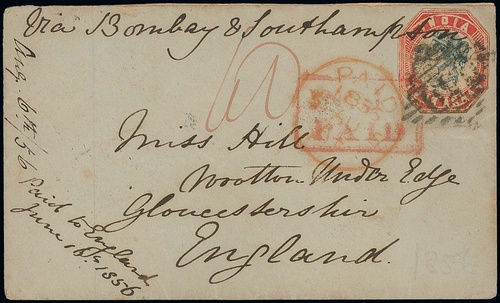 Via Bombay & Southampton
INDIA
PAID
1856
PAID
Miss Hill
Wootton Under Edge
Gloucestershir
England.
Aug. 6th/56
Paid to England
June 16th 1856